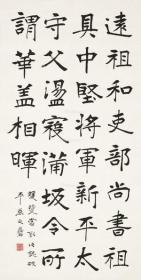 遠祖和吏部尚書祖
具中堅將軍新平太
守父溫寢蒲坂令所
謂華蓋相暉